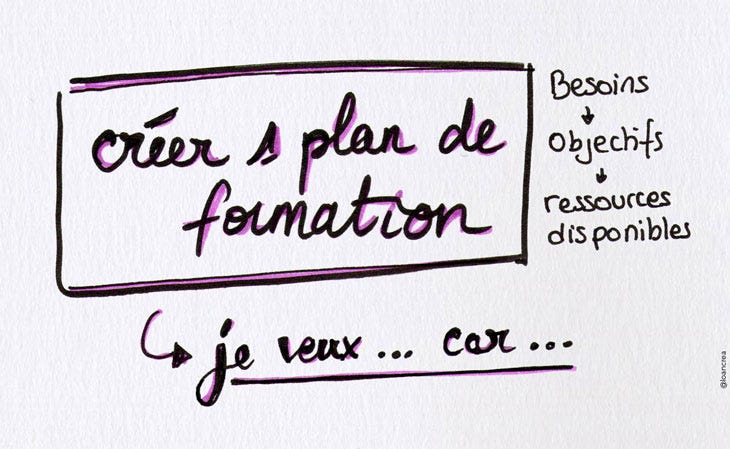 créer 1 plan de
formation
Besoins
objectifs
ressources
disponibles
je veux ... car ...
@loancrea